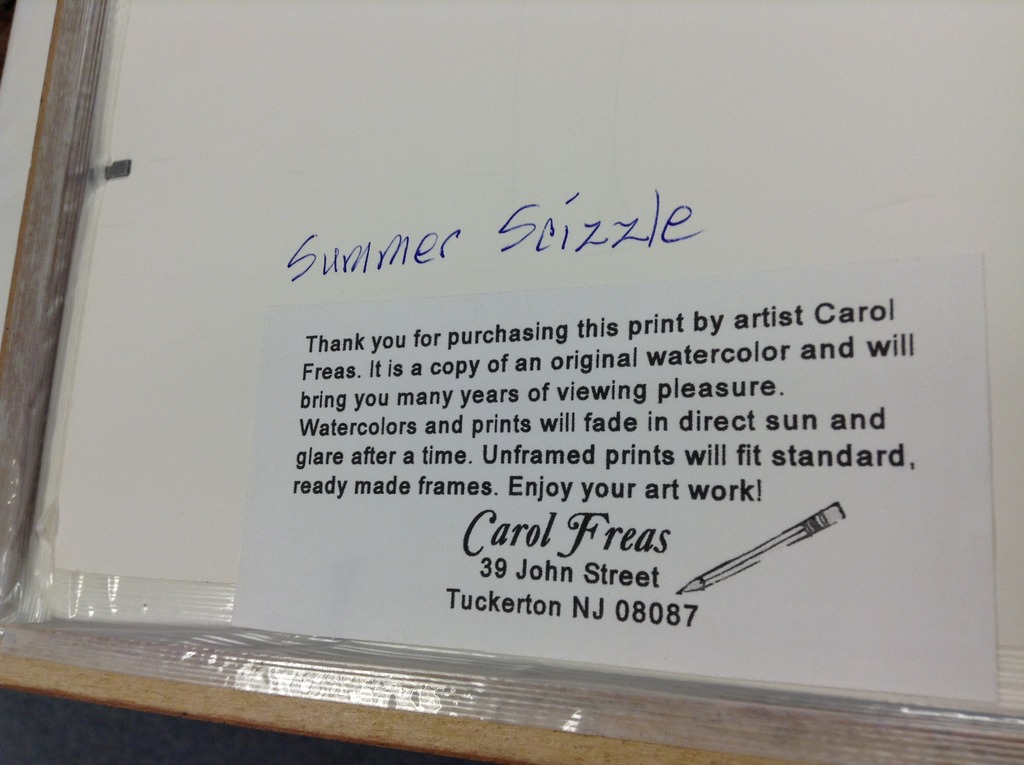 Summer Scizzle
Thank you for purchasing this print by artist Carol
Freas. It is a copy of an original watercolor and will
bring you many years of viewing pleasure.
Watercolors and prints will fade in direct sun and
glare after a time. Unframed prints will fit standard,
ready made frames. Enjoy your art work!
Carol Freas
39 John Street
Tuckerton NJ 08087